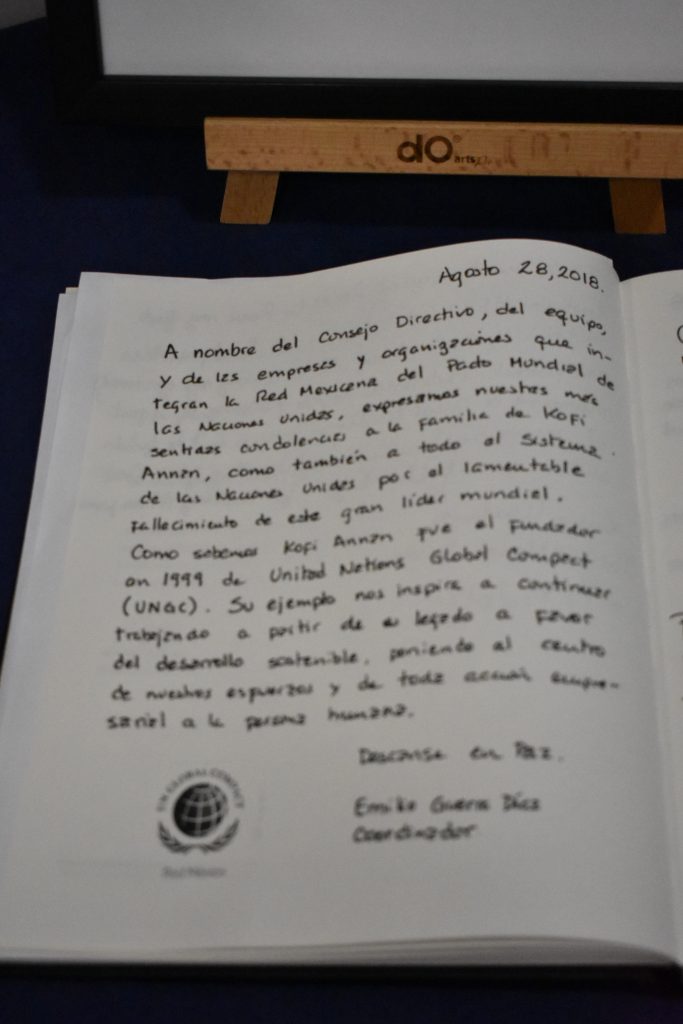 dO
arts
Agosto 28, 2018.
A nombre del Consejo Directivo, del equipo,
y de las empresas y organizaciones que in-
tegran la Red Mexicana del Pacto Mundial de
las Naciones Unidas, expresamos nuestras más
sentidas condolencias a la familia de Kofi
Annan, como también a todo el Sistema
de las Naciones Unidas por el lamentable
fallecimiento de este gran líder mundial.
Como sabemos Kofi Annan fue el fundador
en 1999 de United Nations Global Compact
(UNGC). Su ejemplo nos inspira a continuar
trabajando a partir de su legado a favor
del desarrollo sostenible, poniendo al centro
de nuestros esfuerzos y de toda acción empre-
sarial a la persona humana.
Descanse en Paz.
Guerra Díaz
Coordinador
UN GLOBAL COMPACT
Red México